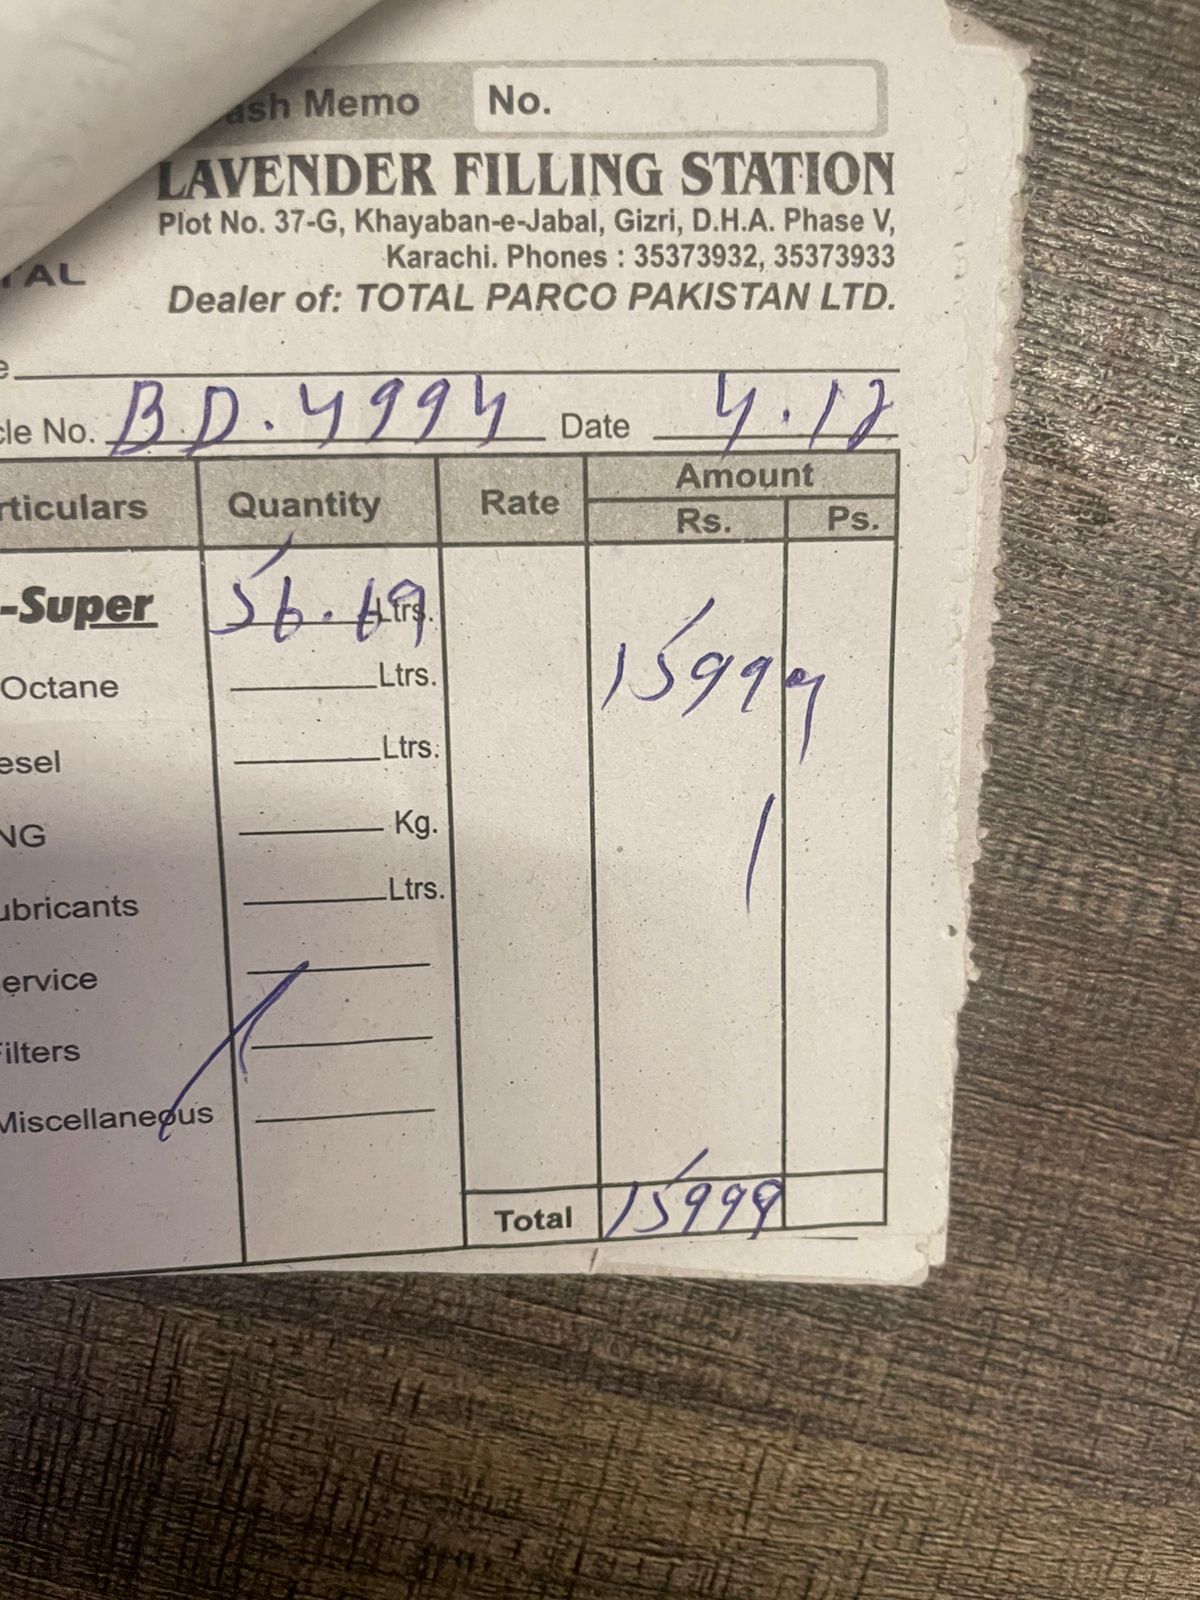 ash Memo No.
LAVENDER FILLING STATION
Plot No. 37-G, Khayaban-e-Jabal, Gizri, D.H.A. Phase V,
Karachi. Phones : 35373932, 35373933
TAL
Dealer of: TOTAL PARCO PAKISTAN LTD.
e
cle No. BD.4994 Date 4.12
rticulars Quantity Rate Amount
Rs. Ps.
-Super 56.69 Ltrs.
15999
Octane Ltrs.
esel Ltrs.
NG Kg.
ubricants Ltrs.
ervice
Filters
Miscellaneous
Total 15999